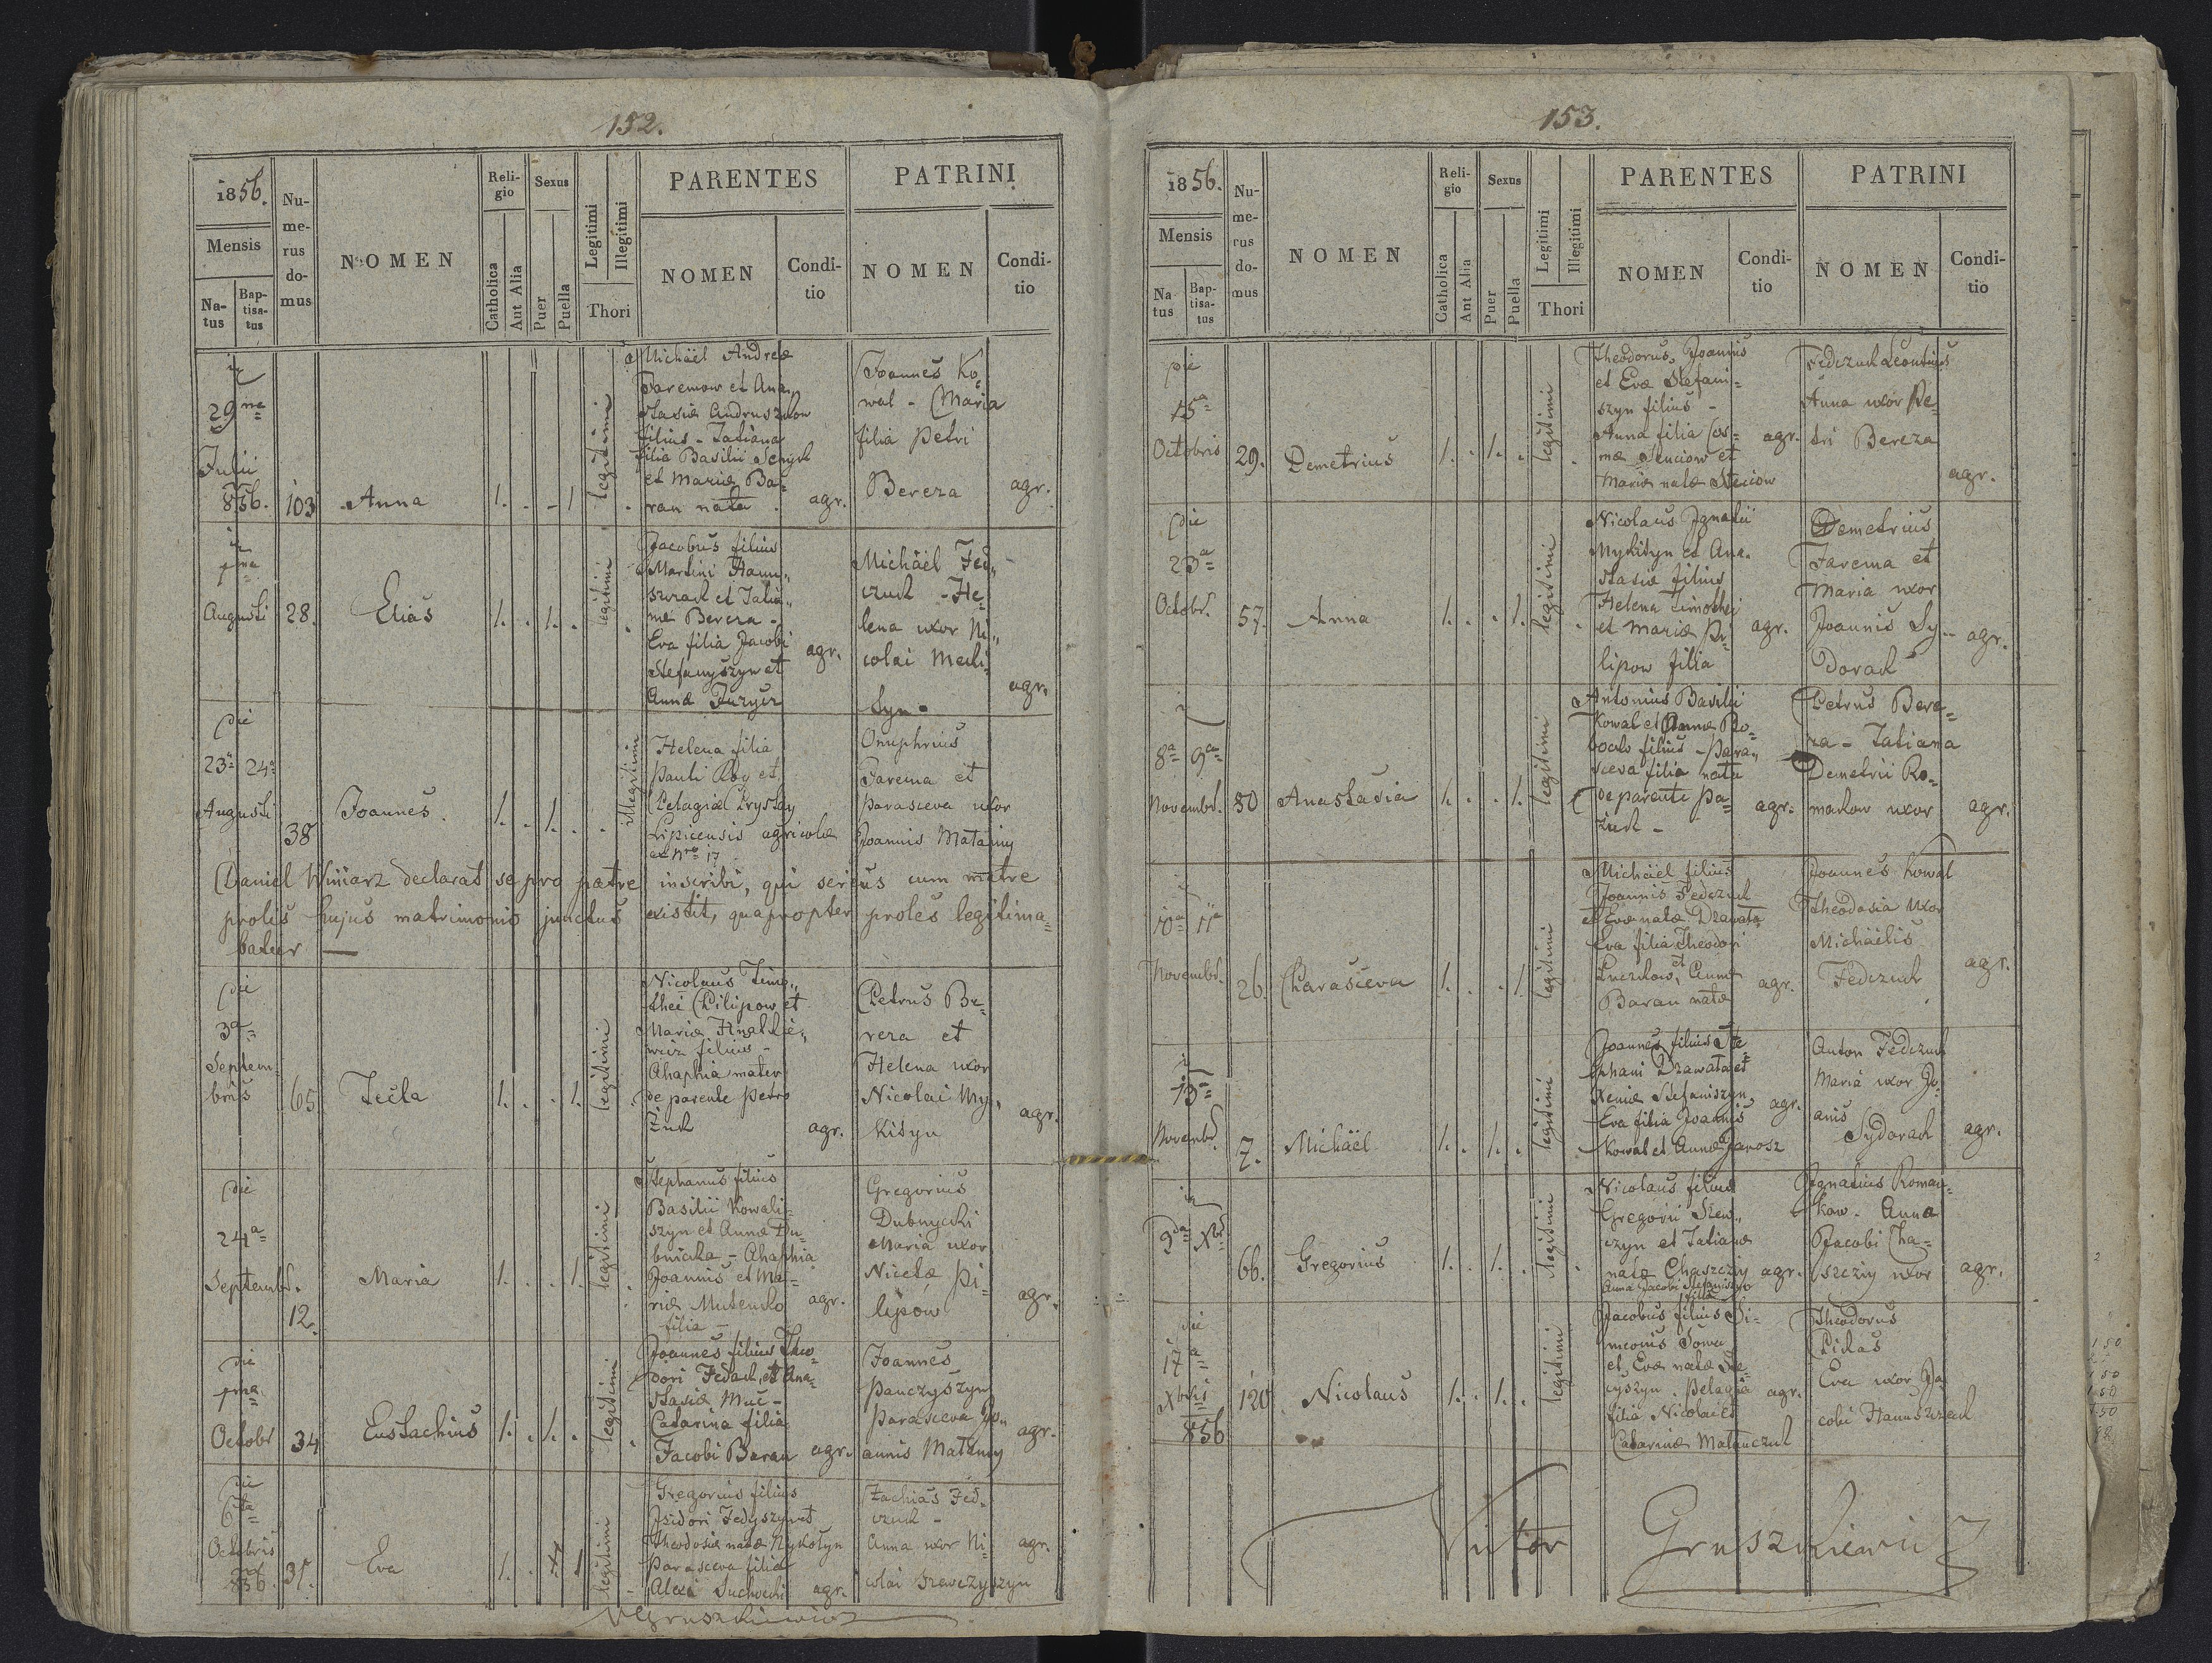 152.
1856.
Mensis
Na-
tus
Bap-
tisa-
tus
Nu-
me-
rus
do-
mus
NOMEN
Reli-
gio
Catholica
Aut Alia
Sexus
Puer
Puella
Legitimi
Illegitimi
Thori
PARENTES
NOMEN
Condi-
tio
PATRINI
NOMEN
Condi-
tio
29
Julii
856. 103 Anna 1. . - 1 legitimi .
Michäel Andreæ
Jaremow et Ana„
stasiæ Andruszkow
filius - Tatiana
filia Basilii Senyk
et Mariæ Ba-
ran nata . agr.
Joannes Ko-
wal - Maria
filia Petri
Bereza agr.
Augusti 28. Elias 1. . 1. . legitimi .
Jacobus filius
Martini Hanu„
szczak et Tatia„
næ Bereza -
Eva filia Jacobi
Stefanyszyn et
Annæ agr.
Michäel Fed„
czuk - He-
lena uxor Ni„
colai
agr.
die
23a 24a
Augusti
38 Joannes. 1. . 1. . . illegitimi
Helena filia
Pauli et
Pelagiæ
Lipicensis agricolæ
ex Nro 17
Onuphrius
Jarema et
Parasceva uxor
Joannis
Daniel Winiarz declarat se pro patre inscribi, qui serius cum matre
prolis hujus matrimonio junctus existit, quapropter proles legitima-
batur —
die
3a
Septem-
bris 65 Tecla 1. . . 1. legitimi .
Nicolaus Timo„
thei Pilipow et
Mariæ
filius -
Ahaphia mater
de parente Petro
agr.
Petrus Be-
reza et
Helena uxor
Nicolai My„
kityn agr.
die
24a
Septembr.
12. Maria 1. . . 1. legitimi .
Stephanus filius
Basilii Kowali-
szyn et Annæ Du-
bnicka - Ahaphia
Joannis et Ma-
riæ agr.
filia -
Gregorius
Dubnycki
Maria uxor
Nicetæ Pi-
lipow agr.
die
pma
Octobr 34 Eustachius 1. . 1. . legitimi .
Joannes filius Theo-
dori Fedak, et Ana-
stasiæ
Catarina filia
Jacobi Baran agr.
Joannes
Panczyszyn
Parasceva Jo„
annis agr.
die
6ta
Octobris
856. 31. Eva 1. . 1 legitimi -
Gregorius filius
Isidori Fedyszyn et
Theodosiæ natæ Mykolyn
Parasceva filia
Alexii agr.
Zachias Fed-
czuk -
Anna uxor Ni- agr.
colai Szewczyszyn
VGruszkiewicz
153.
1856.
Mensis
Na-
tus
Bap-
tisa-
tus
Nu-
me-
rus
do-
mus
NOMEN
Reli-
gio
Catholica
Aut Alia
Sexus
Puer
Puella
Legitimi
Illegitimi
Thori
PARENTES
NOMEN
Condi-
tio
PATRINI
NOMEN
Condi-
tio
die
15a
Octobris 29. Demetrius 1. . 1. . legitimi .
Theodorus, Joannis
et Evæ Stefani-
szyn filius -
Anna filia Cos- agr.
mæ Senciow et
Mariæ natæ
Fedczuk Leontius
Anna uxor Pe-
tri Bereza
agr.
die
23a
Octobr. 57. Anna 1. . . 1. legitimi .
Nicolaus Ignatii
Mykityn et Ana-
stasiæ filius
Helena Timothei
et Mariæ Pi- agr.
lipow filia
Demetrius
Jarema et
Maria uxor
Joannis Sy- agr.
dorak
8a 9a
Novembr. 80 Anastasia 1. . . 1. legitimi
Antonius Basilii
Kowal et Annæ
filius - Para„
sceva filia nata
de parente agr.
Petrus Bere-
za - Tatiana
Demetrii Ro-
mankow uxor agr.
10a 11a
Novembr. 26. Parasceva 1. . . 1 legitimi
Michäel filius
Joannis Fedczuk
et Evæ natæ Drawata
Eva filia Theodori
et Annæ
Baran natæ agr.
Joannes Kowal
Theodosia uxor
Michäelis
Fedczuk agr.
13a
Novembr. 7. Michäel 1. . 1. . legitimi .
Joannes filius Ste-
phani Drawata et
Xeniæ Stefaniszyn,
Eva filia Joannis agr.
Kowal et Annæ Jarosz
Anton Fedczuk
Maria uxor Jo-
anis
Sydorak agr.
66. Gregorius 1. . 1. . legitimi .
Nicolaus filius
Gregorii Szew„
czyn et Tatianæ
natæ Chaszczij agr.
Anna Jacobi Stefaniszyn
filia
Ignatius Roman-
kow. Anna
Jacobi Cha-
szczij uxor agr.
die
17a
Xbris
856 120 Nicolaus 1. . 1. . legitimi
Jacobus filius Si-
meonis Sowa
et Evæ natæ
Pelagia agr.
filia Nicolai et
Catarinæ
Theodorus
Eva uxor Ja-
cobi Hanuszczak
Victor Gruszkiewicz